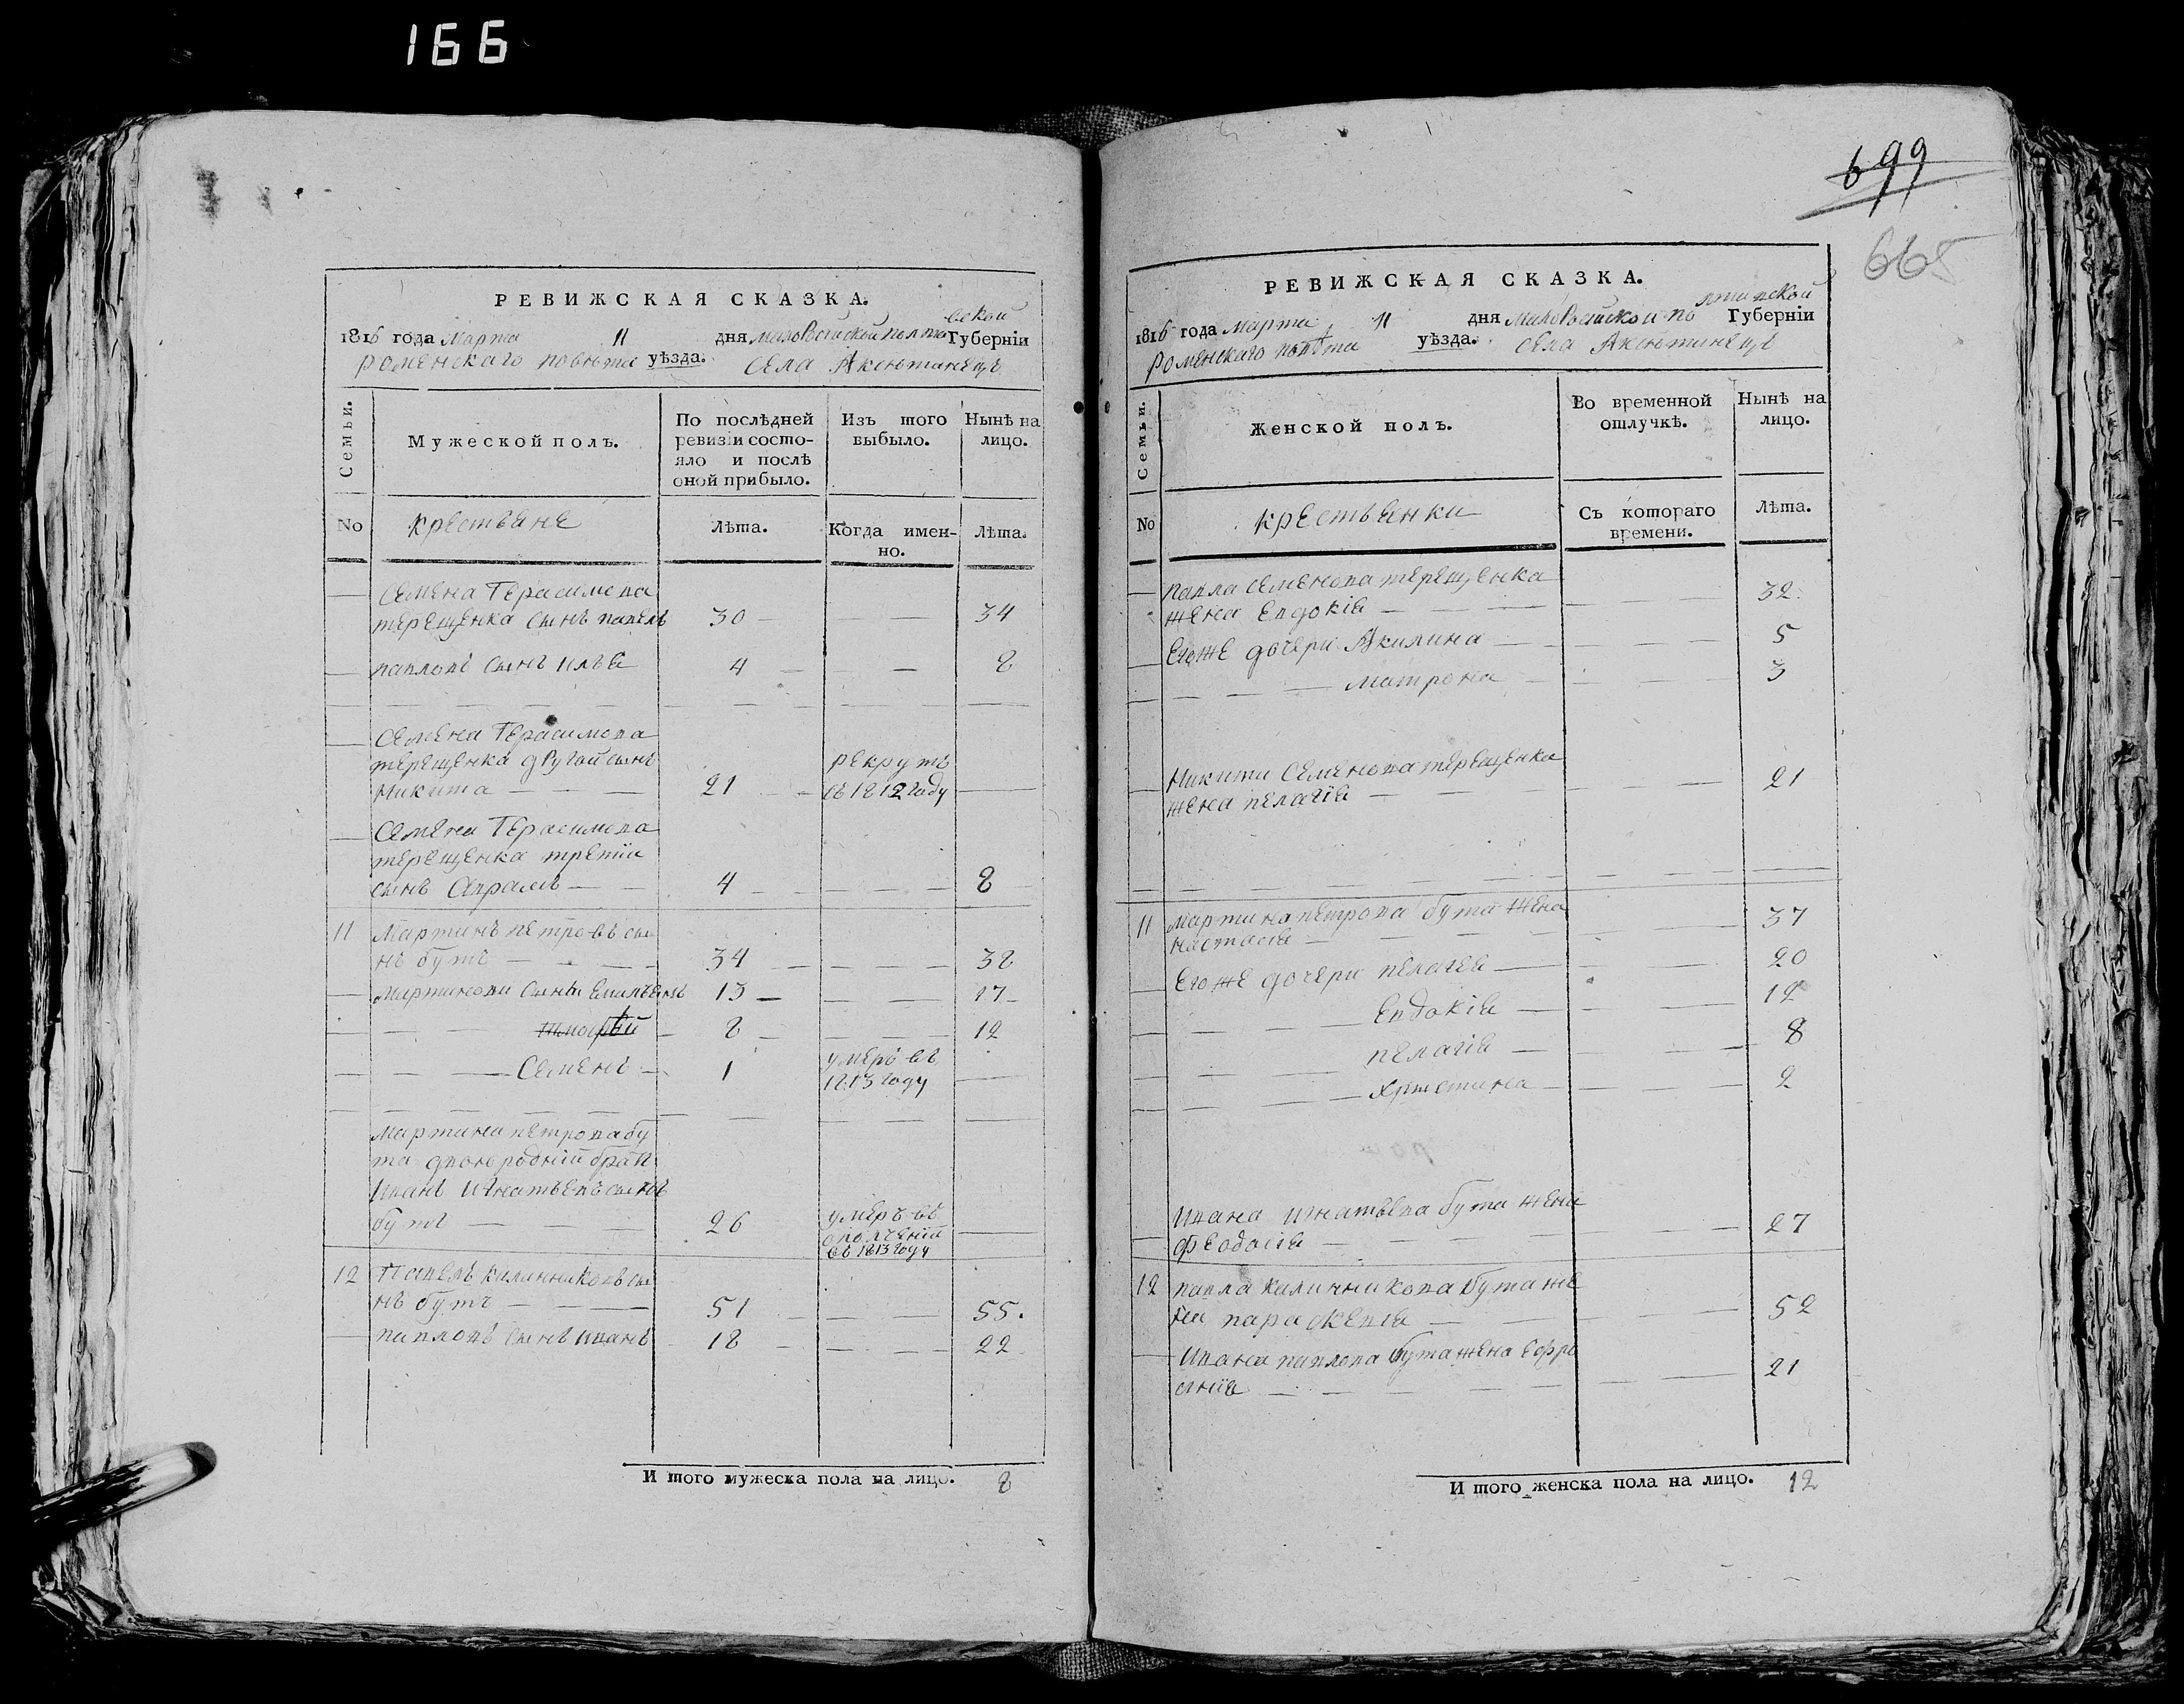 166
РЕВИЖСКАЯ СКАЗКА.
1816 года Марта 11 дня малоРосийской полтавской Губерніи
Роменскаго повѣта уѣзда. Села Аксютинецъ
Семьи.
Мужеской полъ.
По послѣдней ревизіи состояло и послѣ оной прибыло.
Изъ того выбыло.
Нынѣ на лицо.
No Крестьяне Лѣта. Когда именно. Лѣта.
Семена Герасимова
терещенка сынъ павелъ 30 34
павловъ сынъ илья 4 8
Семена Герасимова
терещенка другой сынъ рекрутъ
Никита 21 въ 1812 году
Семена Герасимова
терещенка третіи
сынъ Авраамъ 4 8
11 Мартинъ петровъ сы
нъ бутъ 34 38
мартинови сыны Емильянъ 13 17
8 12
Семенъ 1 умеръ въ 1813 году
Мартина петрова бу
та двоюродній братъ
Иванъ игнатьевъ сынъ
бутъ 26 умеръ въ ополченіи въ 1813 году
12 Павелъ калинниковъ сы
нъ бутъ 51 55.
павловъ сынъ иванъ 18 22
И того мужеска пола на лицо. 8
699
665
РЕВИЖСКАЯ СКАЗКА.
1816 года марта 11 дня МалоРосийской полтавской Губерніи
Роменскаго повѣта уѣзда. Села Аксютинецъ
Семьи.
Женской полъ.
Во временной отлучкѣ.
Нынѣ на лицо.
No крестьянки Съ котораго времени. Лѣта.
павла семенова терещенка
жена Евдокія 32
Егоже дочери Акилина 5
матрона 3
Никити Семенова терещенка
жена пелагія 21
11 мартина петрова бута жена 37
настасія
Егоже дочери пелагея 20
Евдокія 12
пелагія 8
Христина 2
Ивана игнатьева бута жена
феодосія 27
12 павла калинникова бута же
на параскевія 52
Ивана павлова бута жена Ефро
синія 21
И того женска пола на лицо. 12